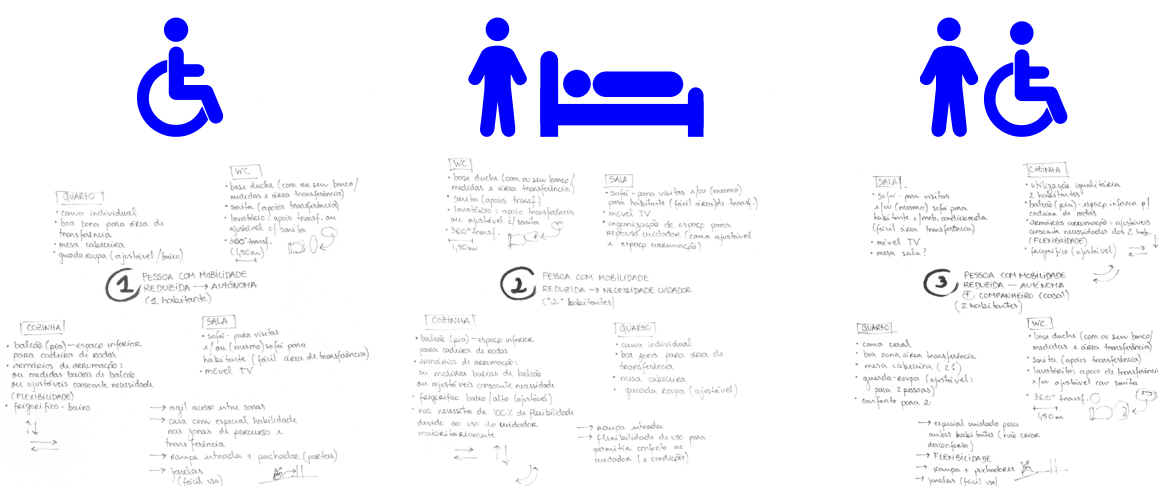 QUARTO
• cama individual
• boa zona para área de
transferência
• mesa cabeceira
• guarda roupa (ajustável/baixo)
WC
• base duche (com ou sem banco/
medidas e área transferência)
• sanita (apoios transferência)
• lavatório/apoio transf. ou
ajustável c/sanita
• 360º transf.
(1,50m)
1 PESSOA COM MOBILIDADE
REDUZIDA → AUTÓNOMA
(1 habitante)
COZINHA
• balcão (pia) — espaço inferior
para cadeira de rodas
• armários de arrumação:
ou medidas baixas de balcão
ou ajustáveis consoante necessidade
(FLEXIBILIDADE)
• frigorífico - baixo
SALA
• sofá - para visitas
e/ou (mesmo) sofá para
habitante (fácil área de transferência)
• móvel TV
→ ágil acesso entre zonas
→ casa com especial habilidade
nas zonas de percurso e
transferência
→ rampa entrada + puchador (portas)
→ janelas
(fácil uso)
WC
• base duche (com ou sem banco/
medidas e área transferência)
• sanita (apoios transf.)
• lavatório: apoio transferência
ou ajustável c/sanita
• 360º transf.
1,50m
SALA
• sofá - para visitas e/ou (mesmo)
para habitante (fácil área de transf.)
• móvel TV
• organização de espaço para
repouso cuidador (cama ajustável
e espaço arrumação)
2 PESSOA COM MOBILIDADE
REDUZIDA → NECESSIDADE CUIDADOR
("2" habitantes)
COZINHA
• balcão (pia) - espaço inferior
para cadeira de rodas
• armários de arrumação:
ou medidas baixas de balcão
ou ajustáveis consoante necessidade
• frigorífico baixo/alto (ajustável)
• não necessita de 100% de flexibilidade
devido ao uso do cuidador
maioritariamente
QUARTO
• cama individual
• boa zona para área de
transferência
• mesa cabeceira
• guarda roupa (ajustável)
→ rampa entrada
→ flexibilidade de uso para
permitir conforto ao
cuidador (e condições)
SALA
• sofá - para visitas
e/ou (mesmo) sofá para
habitante c/mob. condicionada
(fácil área transferência)
• móvel TV
• mesa sala?
COZINHA
• utilização igualitária
2 habitantes
• balcão (pia) - espaço inferior p/
cadeira de rodas
• armários arrumação: ajustáveis
consoante necessidades dos 2 hab.
(FLEXIBILIDADE)
• frigorífico (ajustável)
3 PESSOA COM MOBILIDADE
REDUZIDA — AUTÓNOMA
+ COMPANHEIRO (casal)
(2 habitantes)
QUARTO
• cama casal
• boa zona área transferência
• mesa cabeceira (2?)
• guarda-roupa (ajustável:
para 2 pessoas)
• conforto para 2
WC
• base duche (com ou sem banco/
medidas e área transferência)
• sanita (apoios transferência)
• lavatório: apoio de transferência
e/ou ajustável com sanita
• 360º transf.
1,50m
→ especial cuidado para
ambos habitantes (não criar
desconforto)
→ FLEXIBILIDADE
→ rampa + puchadores
→ janelas (fácil uso)